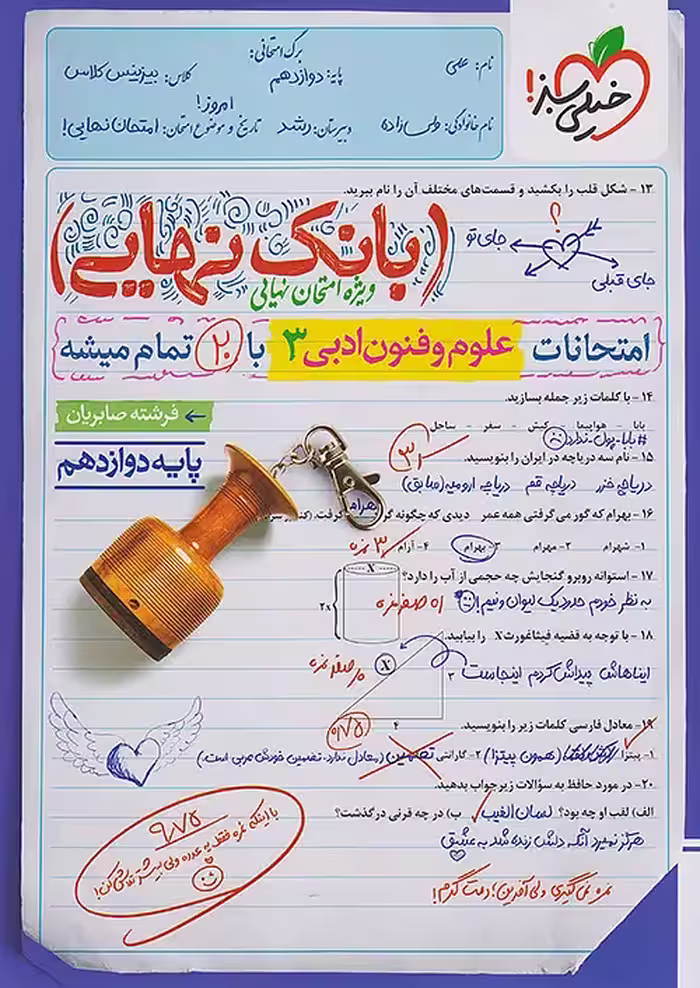 برگ امتحانی:
نام: علی
پایه: دوازدهم
کلاس: بیزینس کلاس
نام خانوادگی: ولی زاده
دبیرستان: رشد
تاریخ و موضوع امتحان: امروز! امتحان نهایی!
خیلی سبز!
۱۳ - شکل قلب را بکشید و قسمت‌های مختلف آن را نام ببرید.
؟
جای تو
جای قبلی
(بانک نهایی)
ویژه امتحان نهایی
امتحانات علوم و فنون ادبی ۳ با ۲۰ تمام میشه
فرشته صابریان
پایه دوازدهم
۱۴ - با کلمات زیر جمله بسازید.
بابا - هواپیما - کیش - سفر - ساحل
#بابا-پول-ندارد
۱۵ - نام سه دریاچه در ایران را بنویسید.
دریاچه خزر دریاچه قم دریاچه ارومیه (سابق)
۱۶ - بهرام که گور می‌گرفتی همه عمر دیدی که چگونه گور بهرام گرفت.
۱- شهرام ۲- مهرام ۳- بهرام ۴- آرام
۱۷ - استوانه روبرو گنجایش چه حجمی از آب را دارد؟
X
2x
به نظر خودم حدود یک لیوان و نیم!
۱۸ - با توجه به قضیه فیثاغورث X را بیابید.
ایناهاش پیداش کردم اینجاست
X
۳
۴
۰/۷۵
۱۹ - معادل فارسی کلمات زیر را بنویسید.
۱- پیتزا (همون پیتزا) ۲- گارانتی تضمین (معادل ندارد. تضمین خودش عربی است.)
۲۰- در مورد حافظ به سؤالات زیر جواب بدهید.
الف) لقب او چه بود؟ لسان الغیب ب) در چه قرنی درگذشت؟
هرگز نمیرد آنکه دلش زنده شد به عشق
نمره نمی‌گیری ولی آفرین! دمت گرم!
۹/۷۵
با اینکه نمره فقط یه عدده ولی بیشتر تلاش کن!